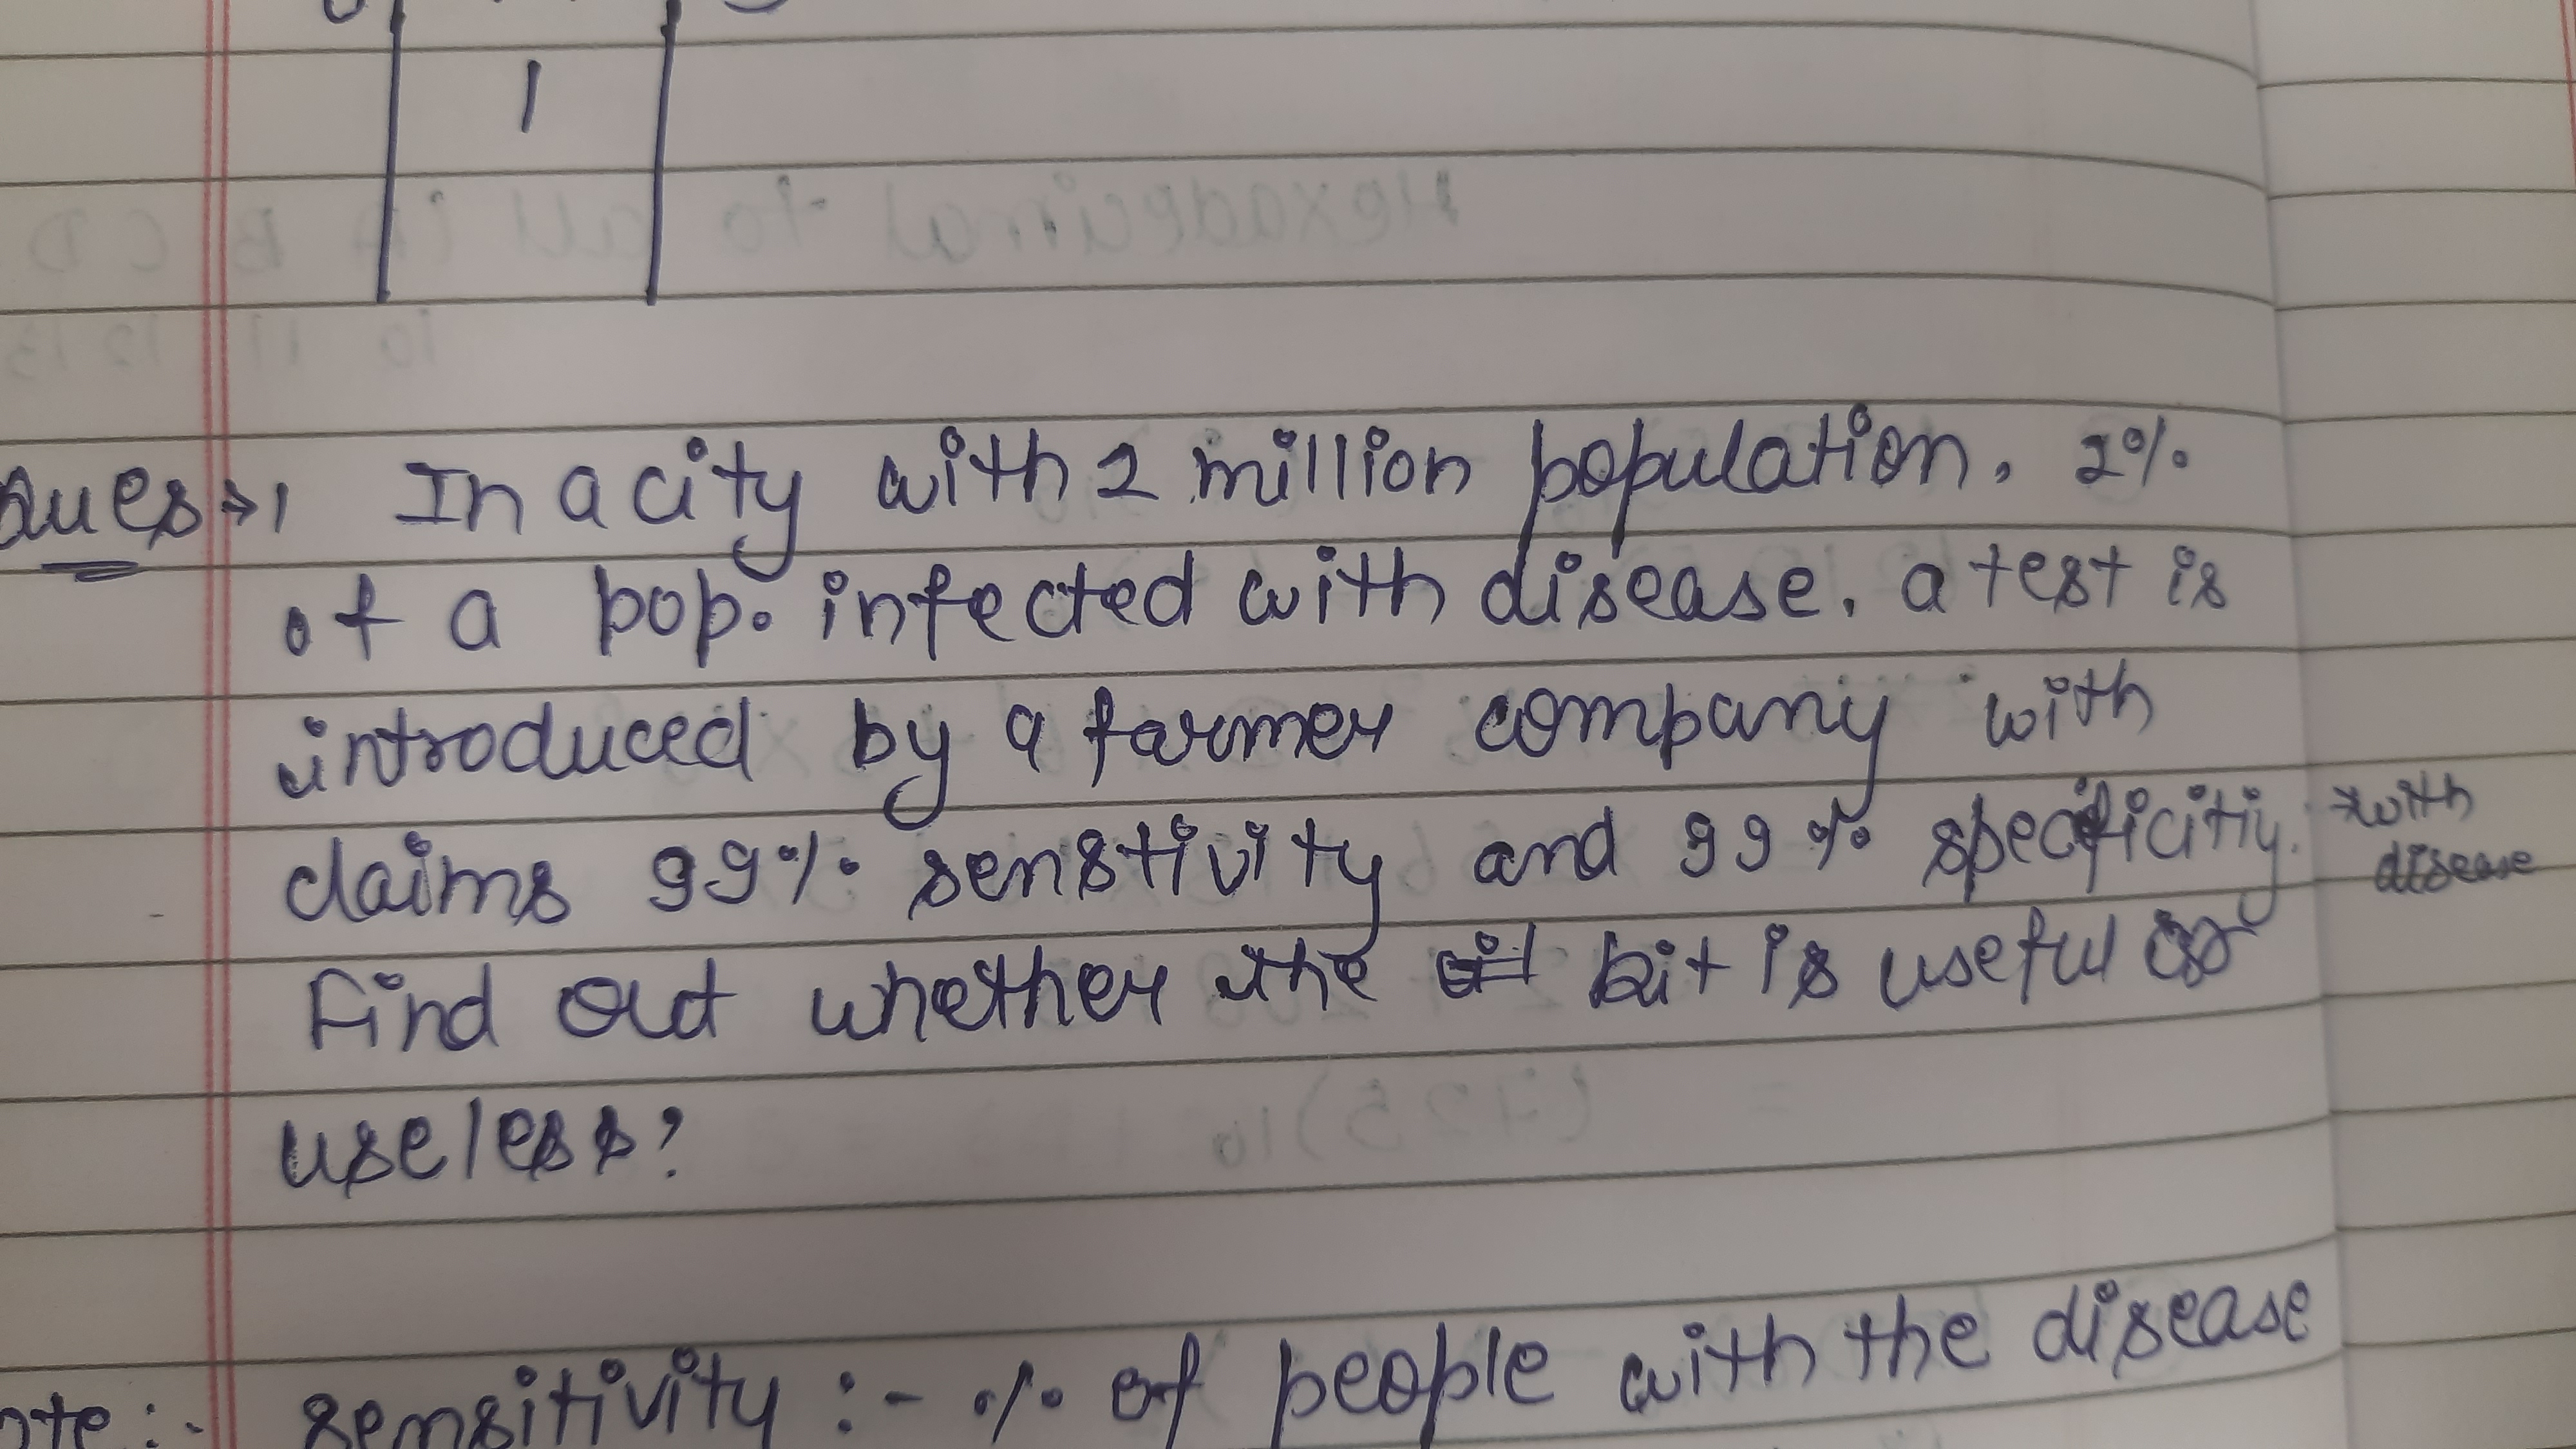 Ques→1 In a city with 2 million population. 2%
of a pop. infected with disease. a test is
introduced by a farmer company with
claims 99% senstivity and 99% specificity. → with
disease
Find out whether the kit is useful or
useless?
ote :- Sensitivity :- % of people with the disease